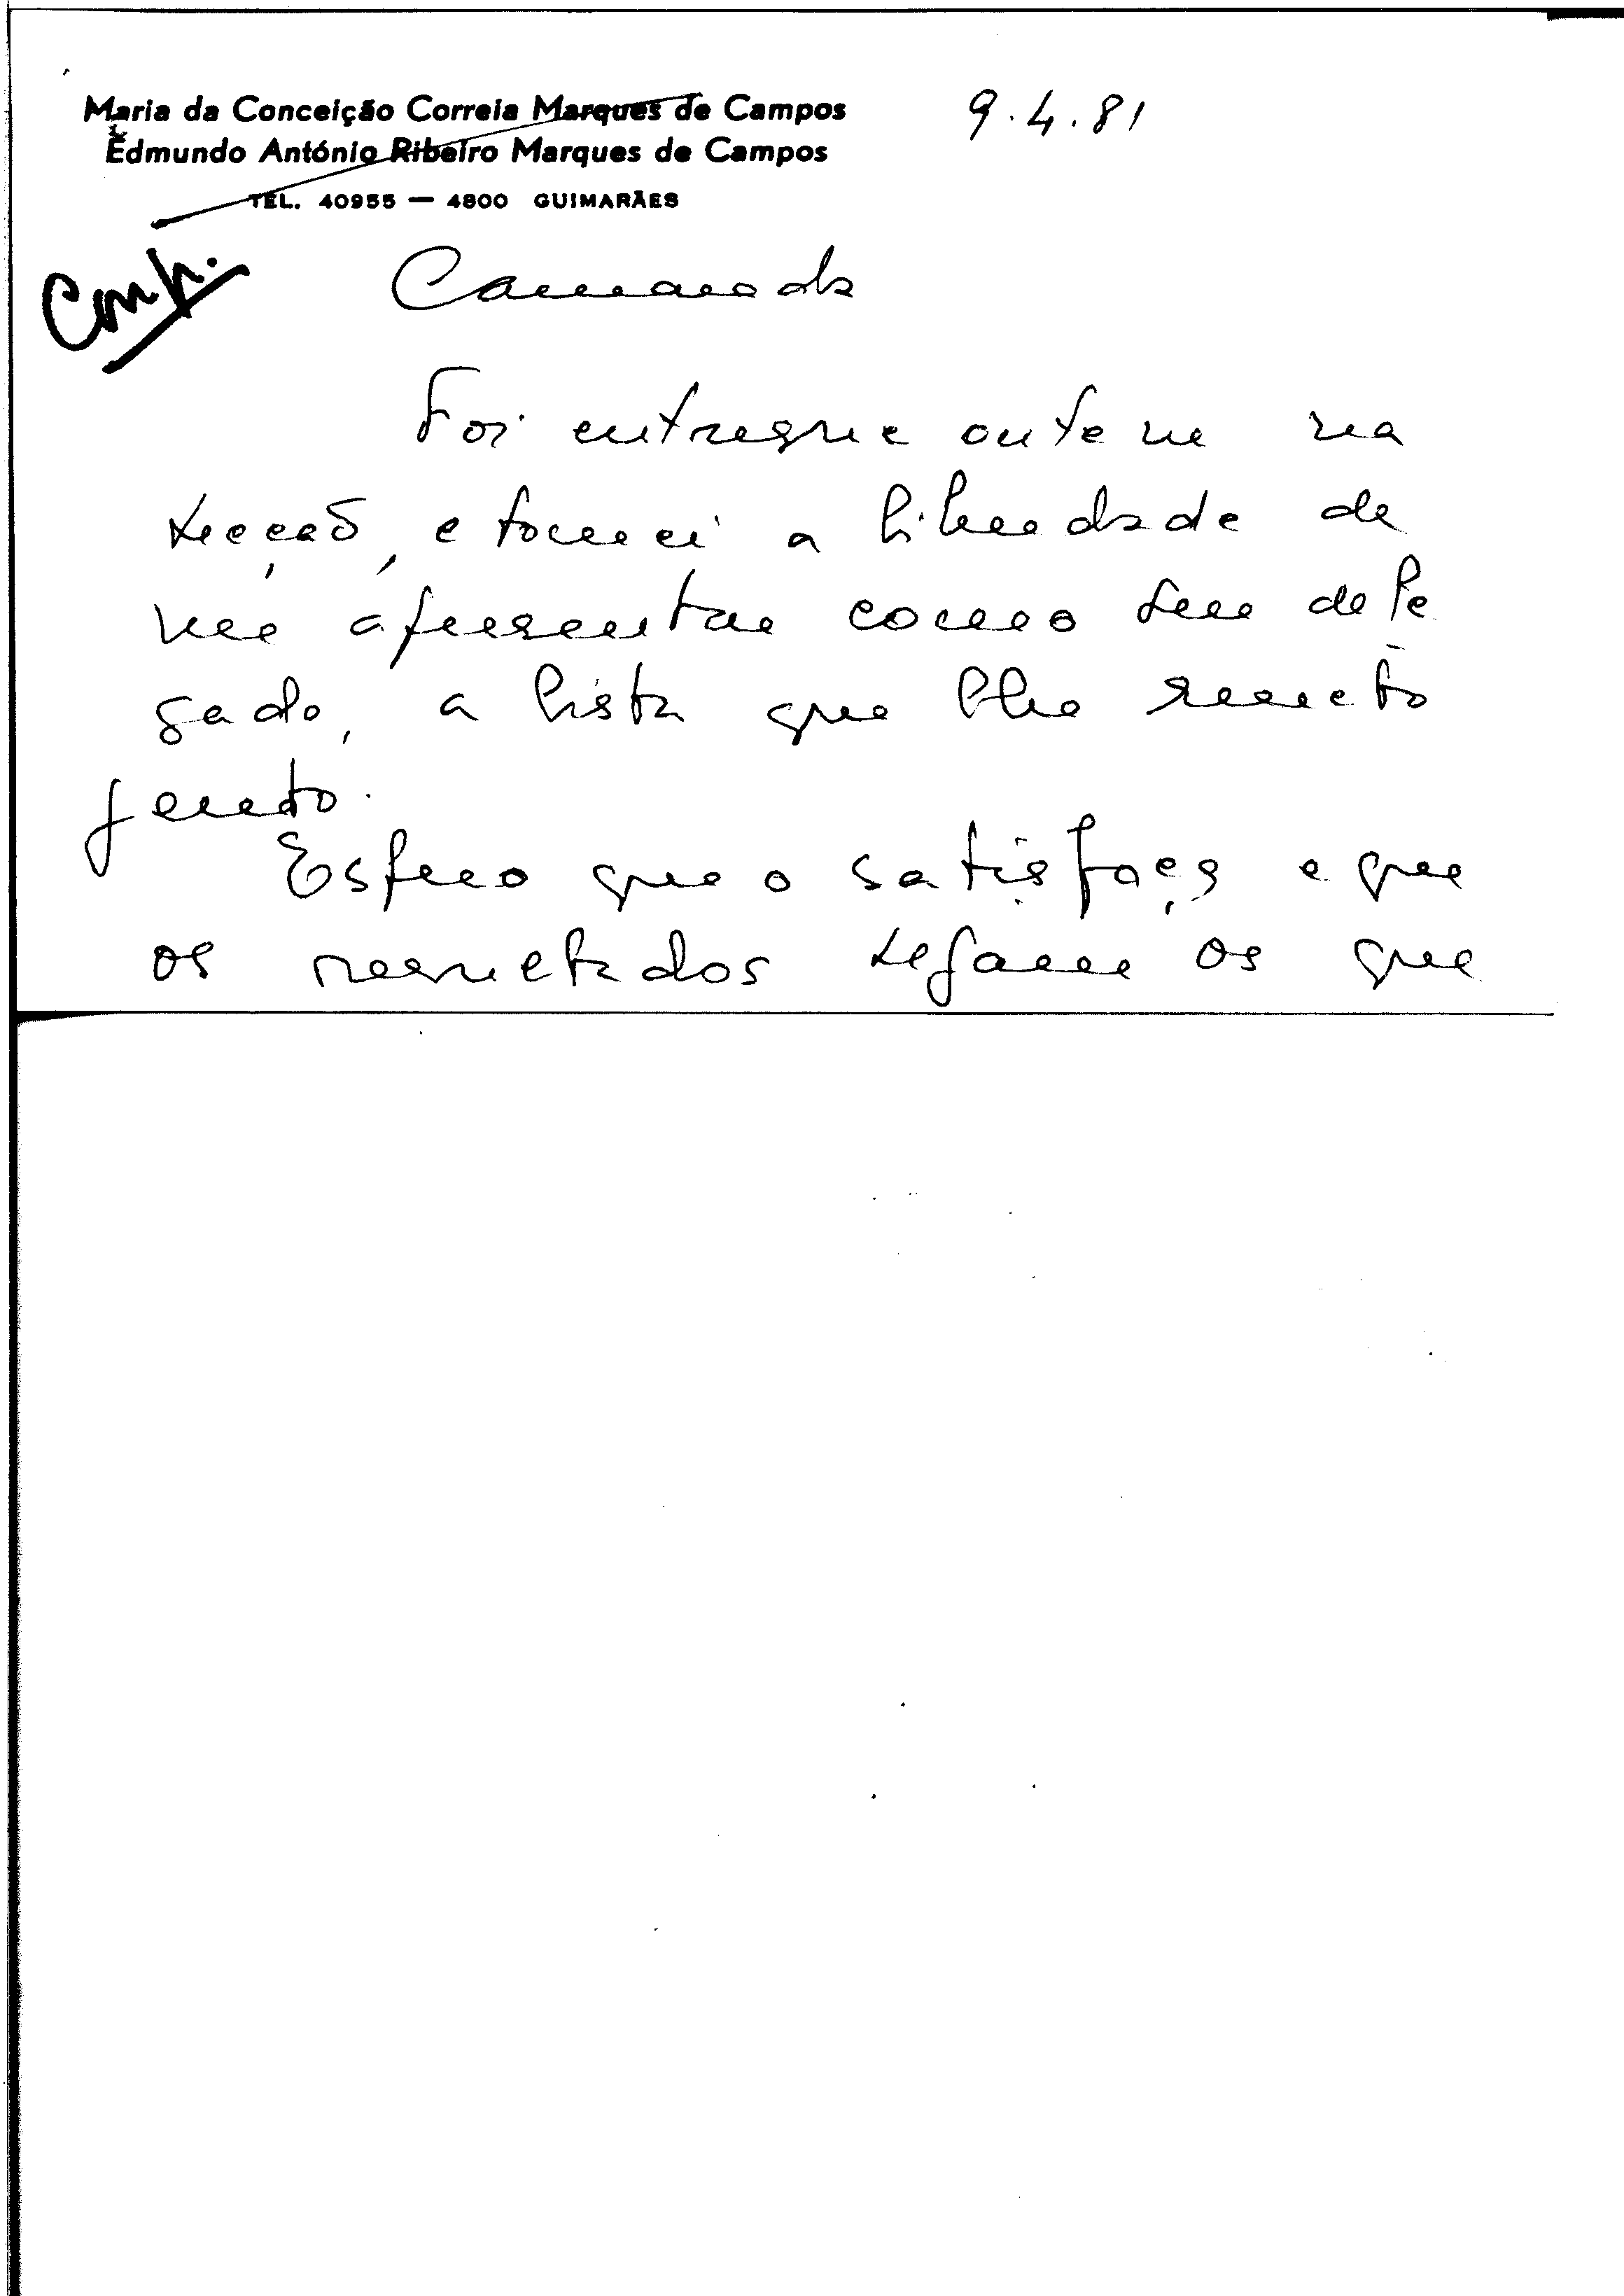 Maria da Conceição Correia Marques de Campos
Edmundo António Ribeiro Marques de Campos
TEL. 40955 — 4800 GUIMARÃES
9.4.81
Comp.
Camarada
Foi entregue ontem na
secção, e tomei a liberdade de
me apresentar como seu dele
gado, a lista que lhe remeto
junto.
Espero que o satisfaça e que
os resultados sejam os que